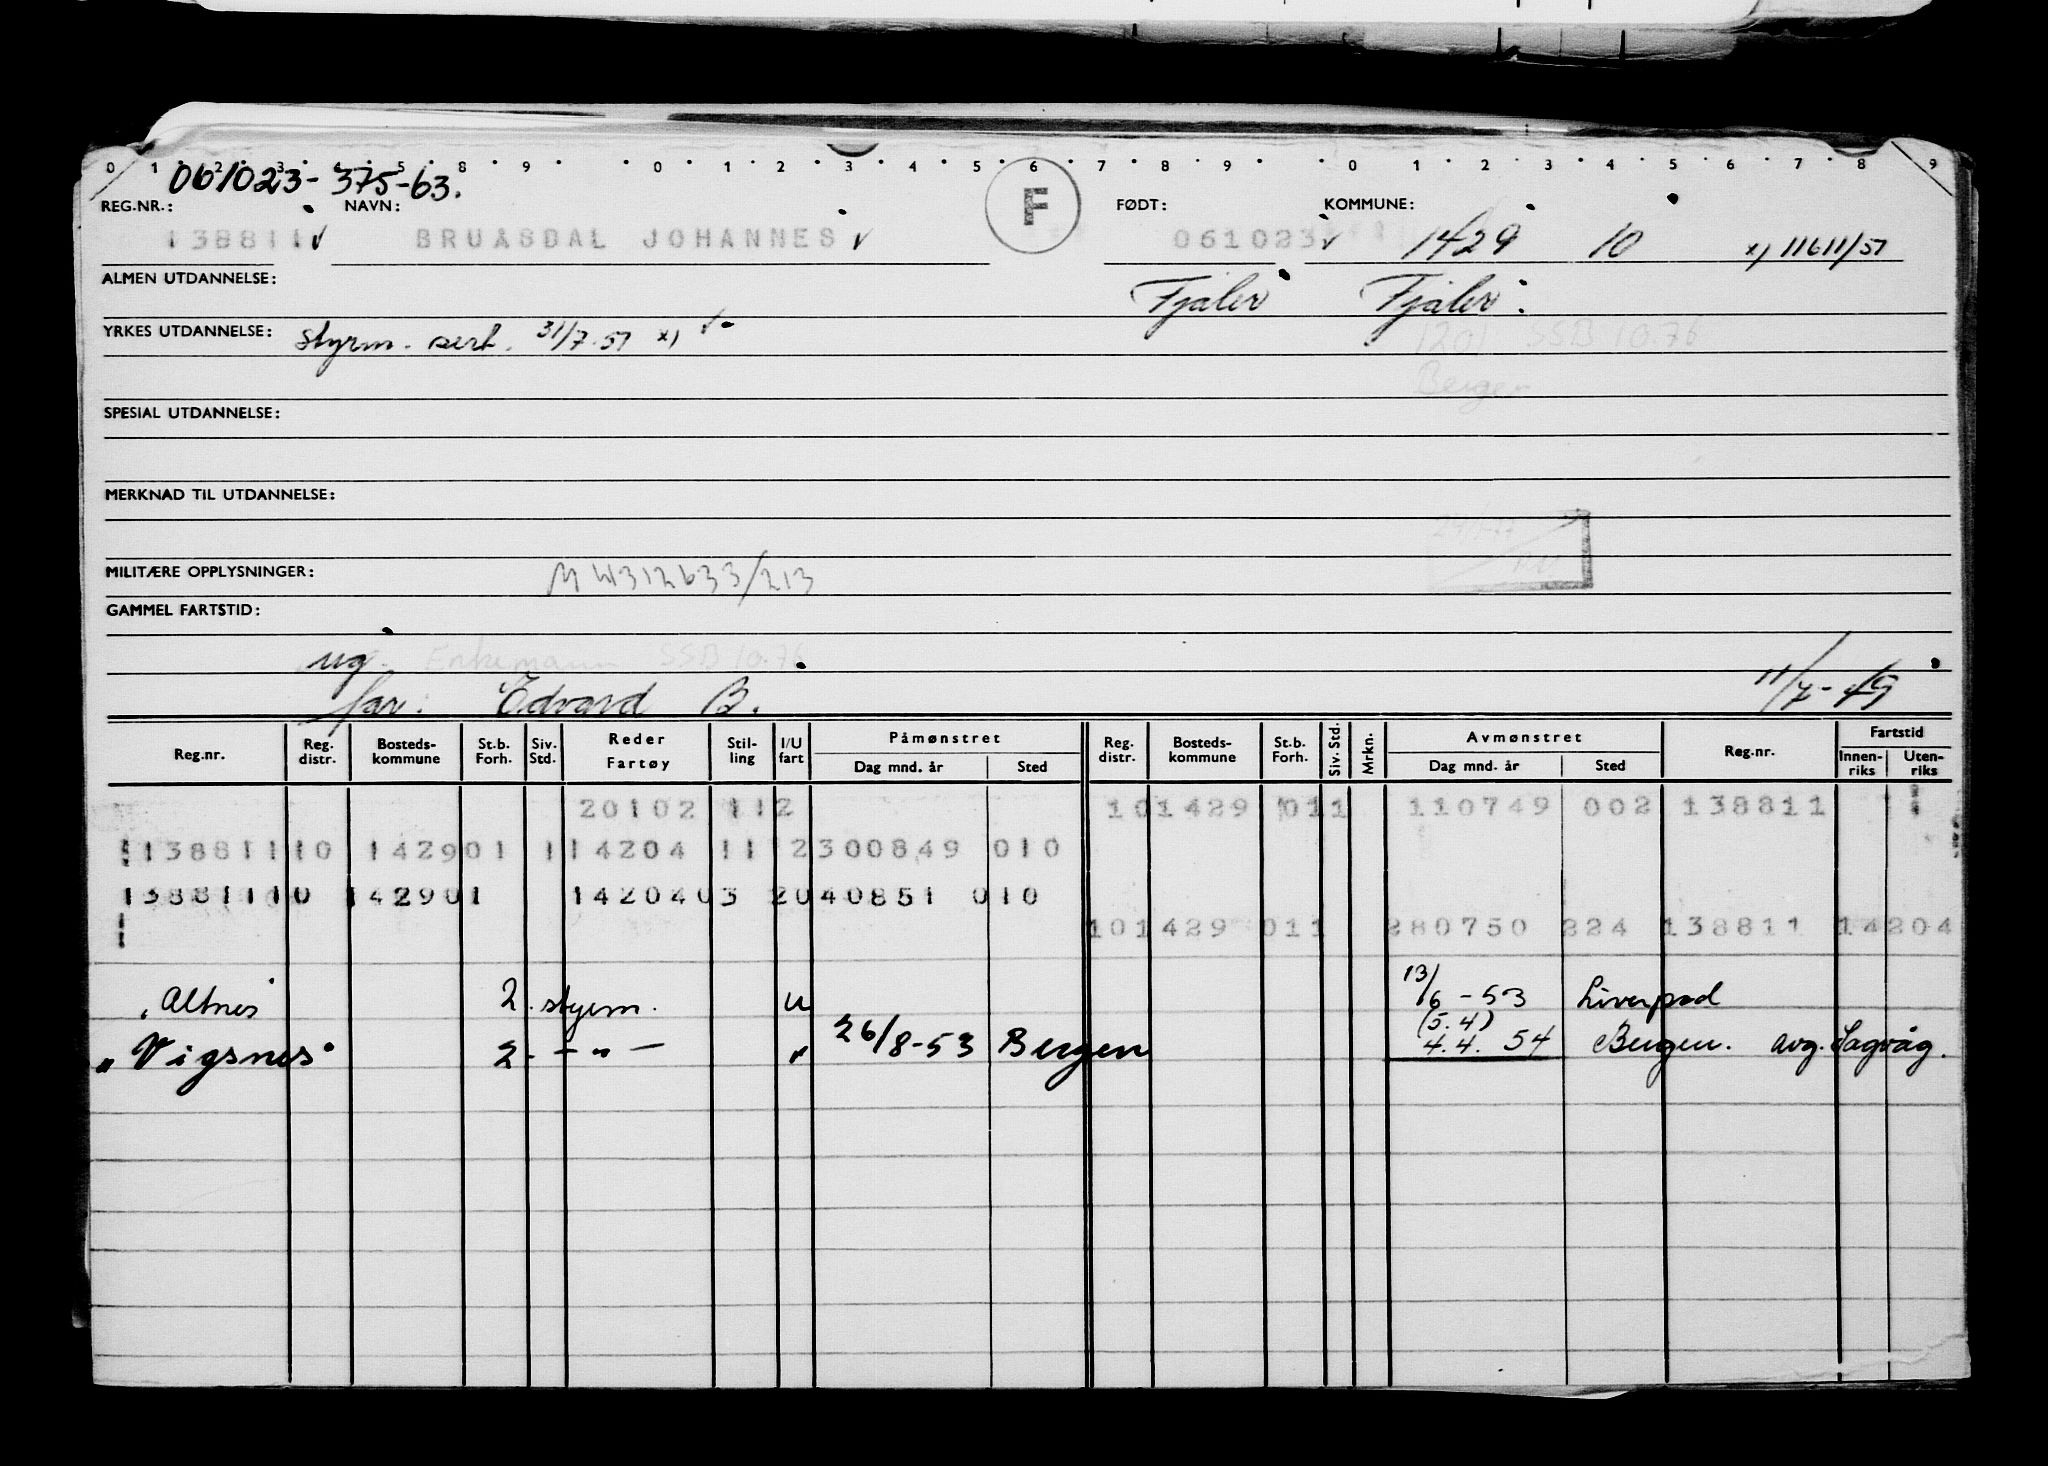 0 1 2 3 4 5 8 9 0 1 2 3 5 6 7 8 9 0 1 2 3 4 5 6 7 8 9
061023-375-63.
REG.NR.: NAVN: F FØDT: KOMMUNE:
138811 BRUASDAL JOHANNES 061023 1429 10 x) 11611/57
ALMEN UTDANNELSE: Fjaler Fjaler.
YRKES UTDANNELSE: styrm. sert. 31/7.51 x)
1201 SSB 10.76
Bergen
SPESIAL UTDANNELSE:
MERKNAD TIL UTDANNELSE:
MILITÆRE OPPLYSNINGER: MW312633/213
GAMMEL FARTSTID:
ug. Enkemann SSB 10.76
far: Edvard B. 11/7-49
Reg.nr. Reg. distr. Bosteds- kommune St.b. Forh. Siv. Std. Reder Fartøy Stil- ling I/U fart Påmønstret Dag mnd. år Sted Reg. distr. Bosteds- kommune St.b. Forh. Siv. Std. Mrkn. Avmønstret Dag mnd. år Sted Reg.nr. Fartstid Innen- riks Uten- riks
20102 112 101429 011 110749 002 138811
13881110 142901 114204 11 2300849 010
13881110 142901 1420403 2040851 010
101429 011 280750 224 138811 14204
"Altnes" 2. styrm. u 13/6-53 Liverpool
"Vigsnes" 2. -"- " 26/8-53 Bergen (5.4) 4.4. 54 Bergen. avg. Sagvåg.